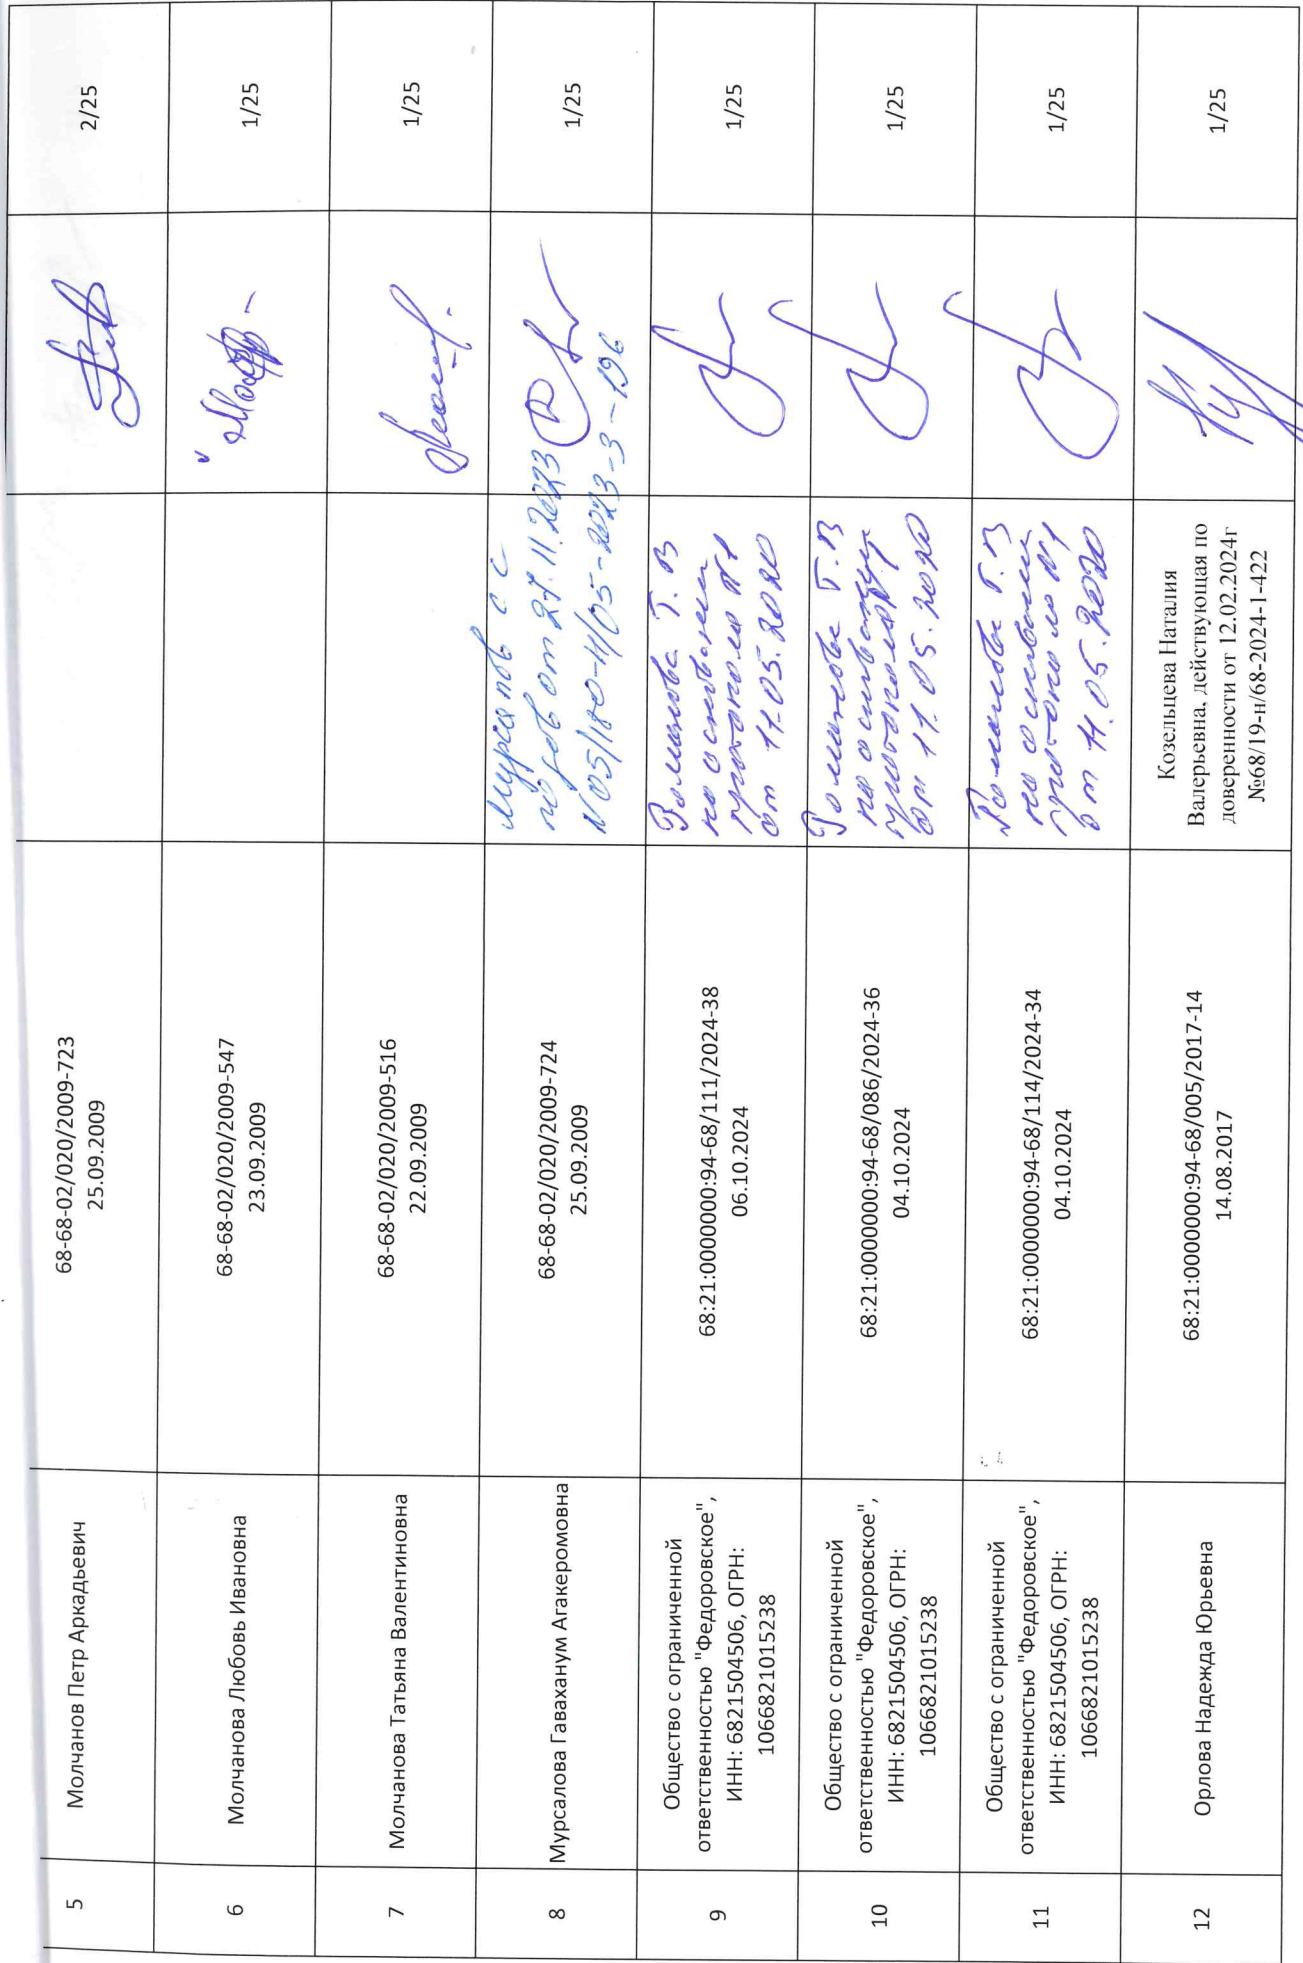 5
Молчанов Петр Аркадьевич
68-68-02/020/2009-723
25.09.2009
2/25
6
Молчанова Любовь Ивановна
68-68-02/020/2009-547
23.09.2009
1/25
7
Молчанова Татьяна Валентиновна
68-68-02/020/2009-516
22.09.2009
1/25
8
Мурсалова Гаваханум Агакеромовна
68-68-02/020/2009-724
25.09.2009
от 27.11.2023
N 05/180-н/05-2023-3-196
1/25
9
Общество с ограниченной
ответственностью "Федоровское",
ИНН: 6821504506, ОГРН:
1066821015238
68:21:0000000:94-68/111/2024-38
06.10.2024
Романова Т. В
на основании
протокола №1
от 11.05.2020
1/25
10
Общество с ограниченной
ответственностью "Федоровское",
ИНН: 6821504506, ОГРН:
1066821015238
68:21:0000000:94-68/086/2024-36
04.10.2024
Романова Т. В
на основании
протокола №1
от 11.05.2020
1/25
11
Общество с ограниченной
ответственностью "Федоровское",
ИНН: 6821504506, ОГРН:
1066821015238
68:21:0000000:94-68/114/2024-34
04.10.2024
Романова Т. В
на основании
протокола №1
от 11.05.2020
1/25
12
Орлова Надежда Юрьевна
68:21:0000000:94-68/005/2017-14
14.08.2017
Козельцева Наталия
Валерьевна, действующая по
доверенности от 12.02.2024г
№68/19-н/68-2024-1-422
1/25